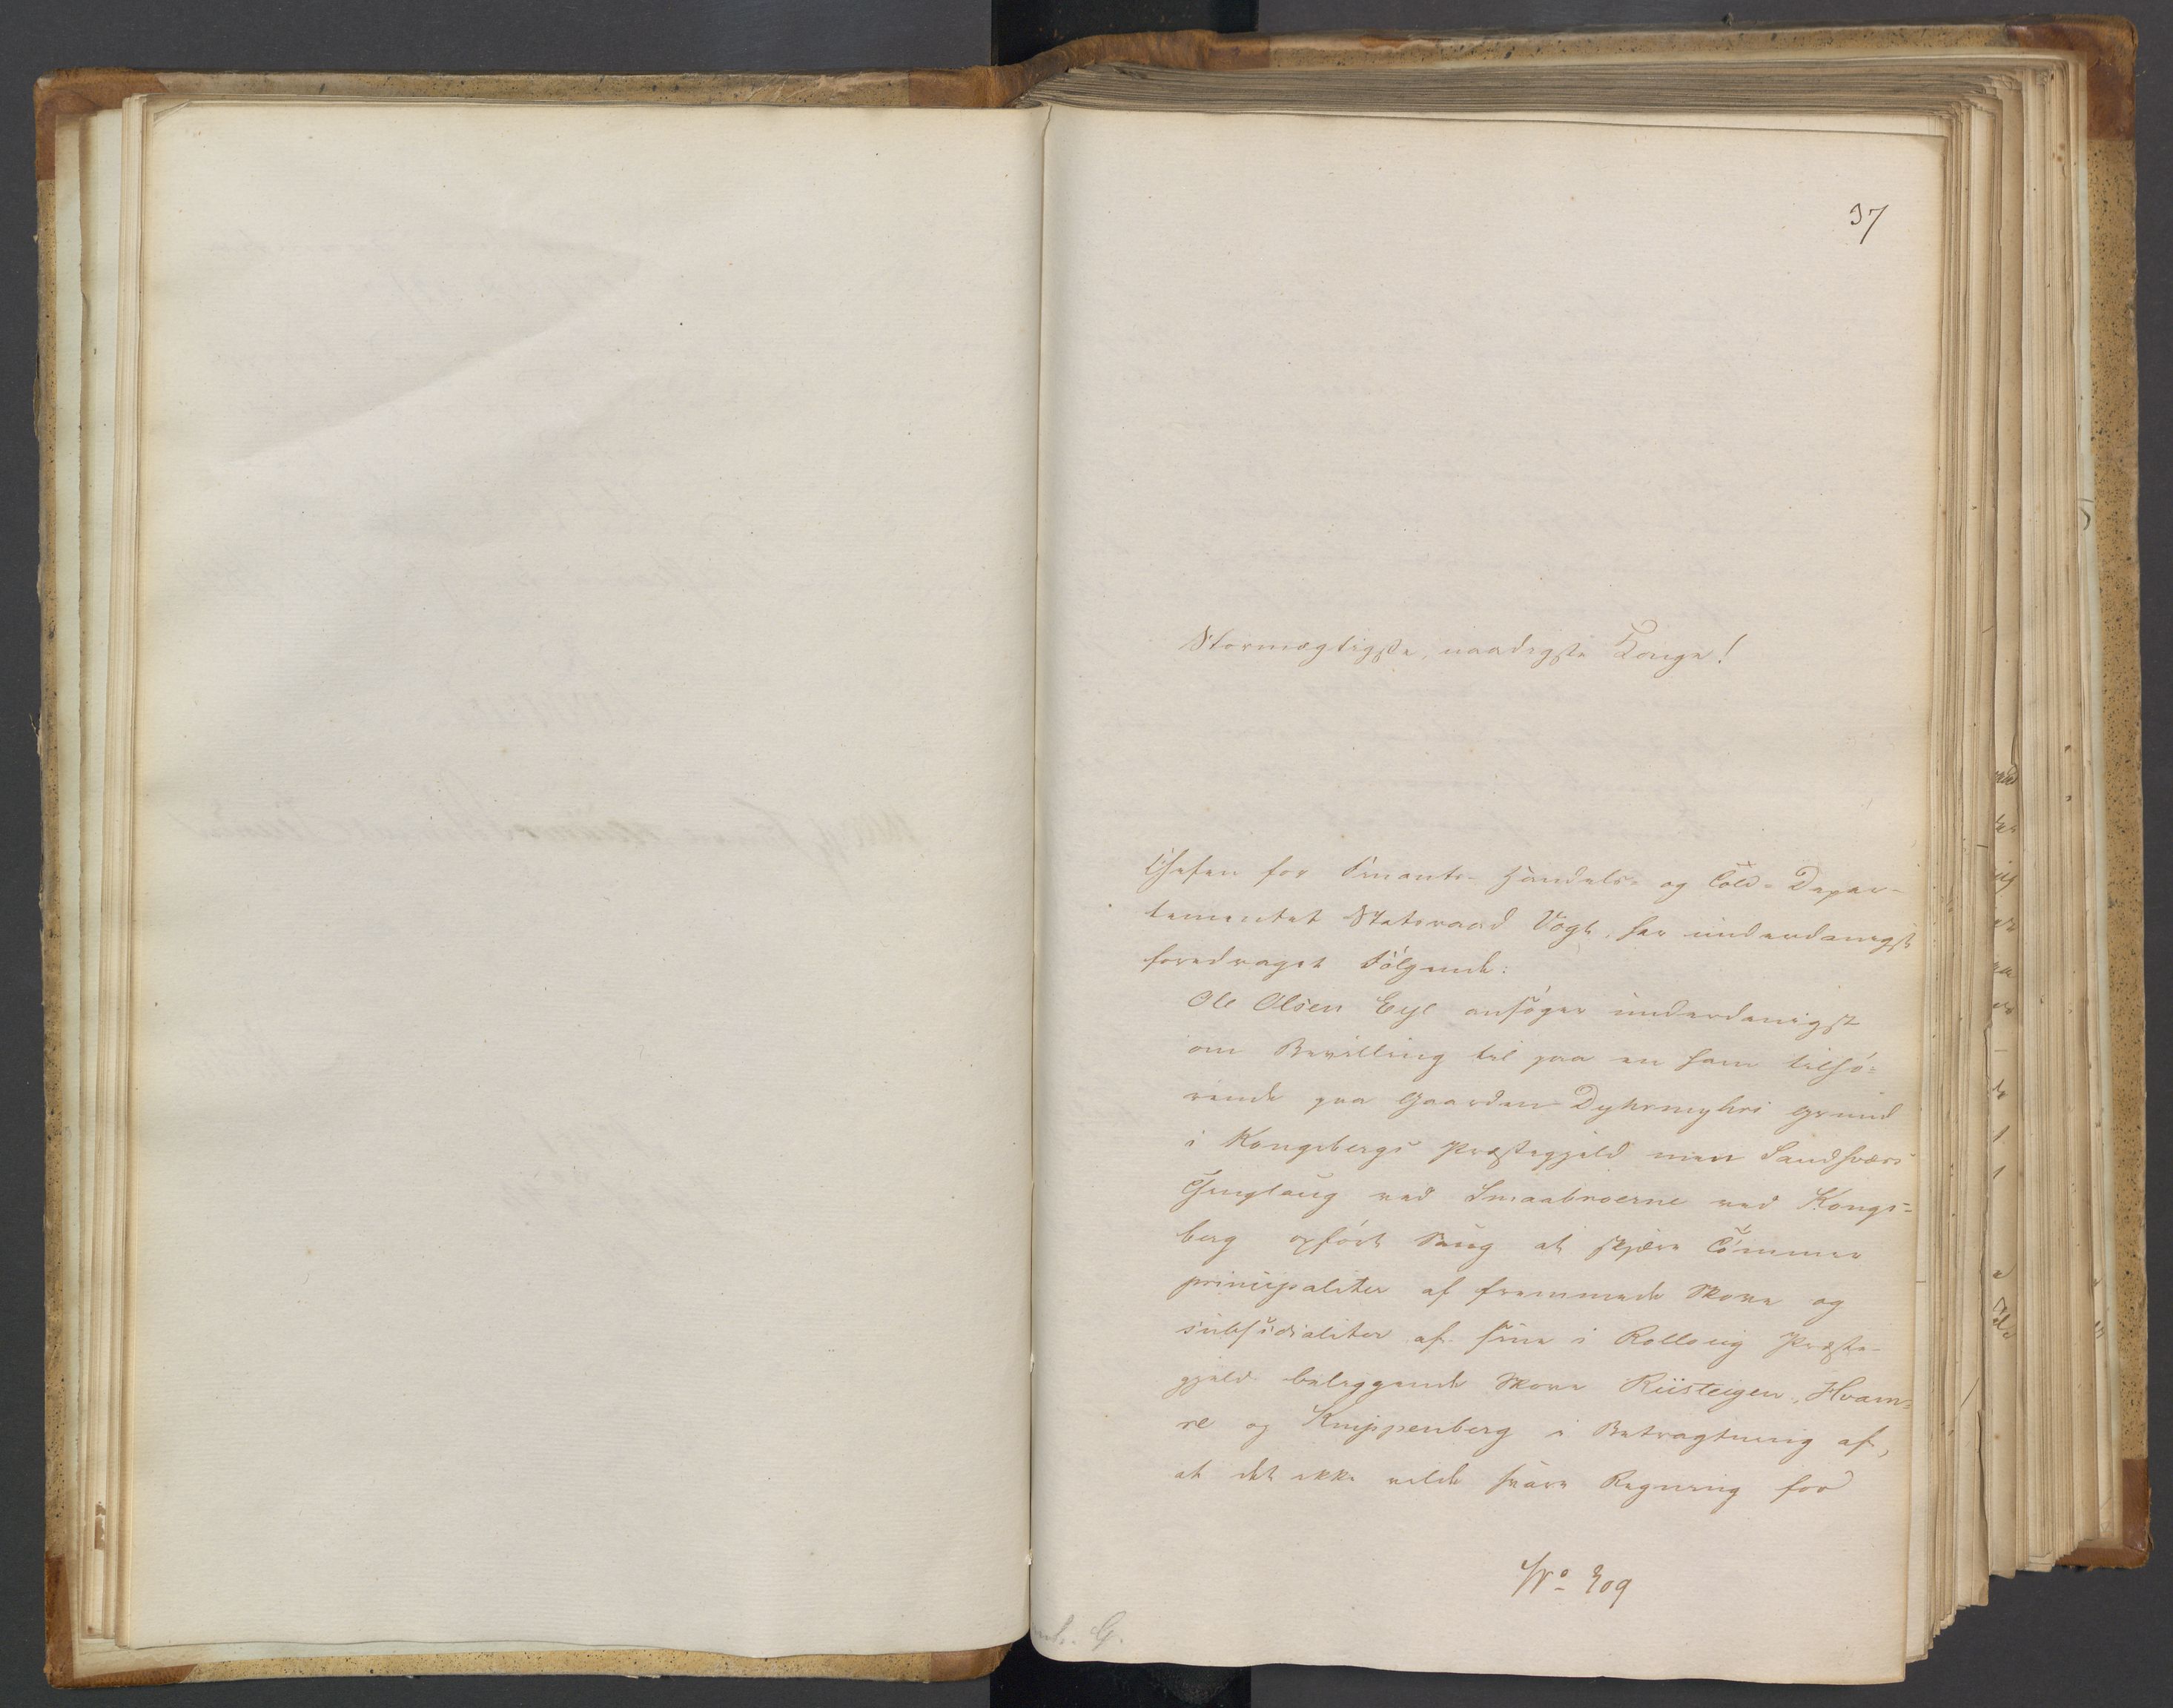 37
Stormægtigste, naadigste Konge!
Chefen for Finants- Handels- og Told-Depar-
tementet Statsraad Vogt har underdanigst
foredraget Følgende:
Ole Olsen Eye ansøger underdanigst
om Bevilling til paa en ham tilhø-
rende paa Gaarden Dyhrmyhrs Grund
i Kongsbergs Præstegjeld men Sandsværs
Thinglaug ved Smaabroerne ved Kongs-
berg opført Saug at skjære Tømmer
principaliter af fremmede Skove og
subsidialiter af sine i Rollaug Præste-
gjeld beliggende Skove Riisteigen, Hvam-
re og Knippenberg i Betragtning af,
at det ikke vilde svare Regning for
No 309
G.